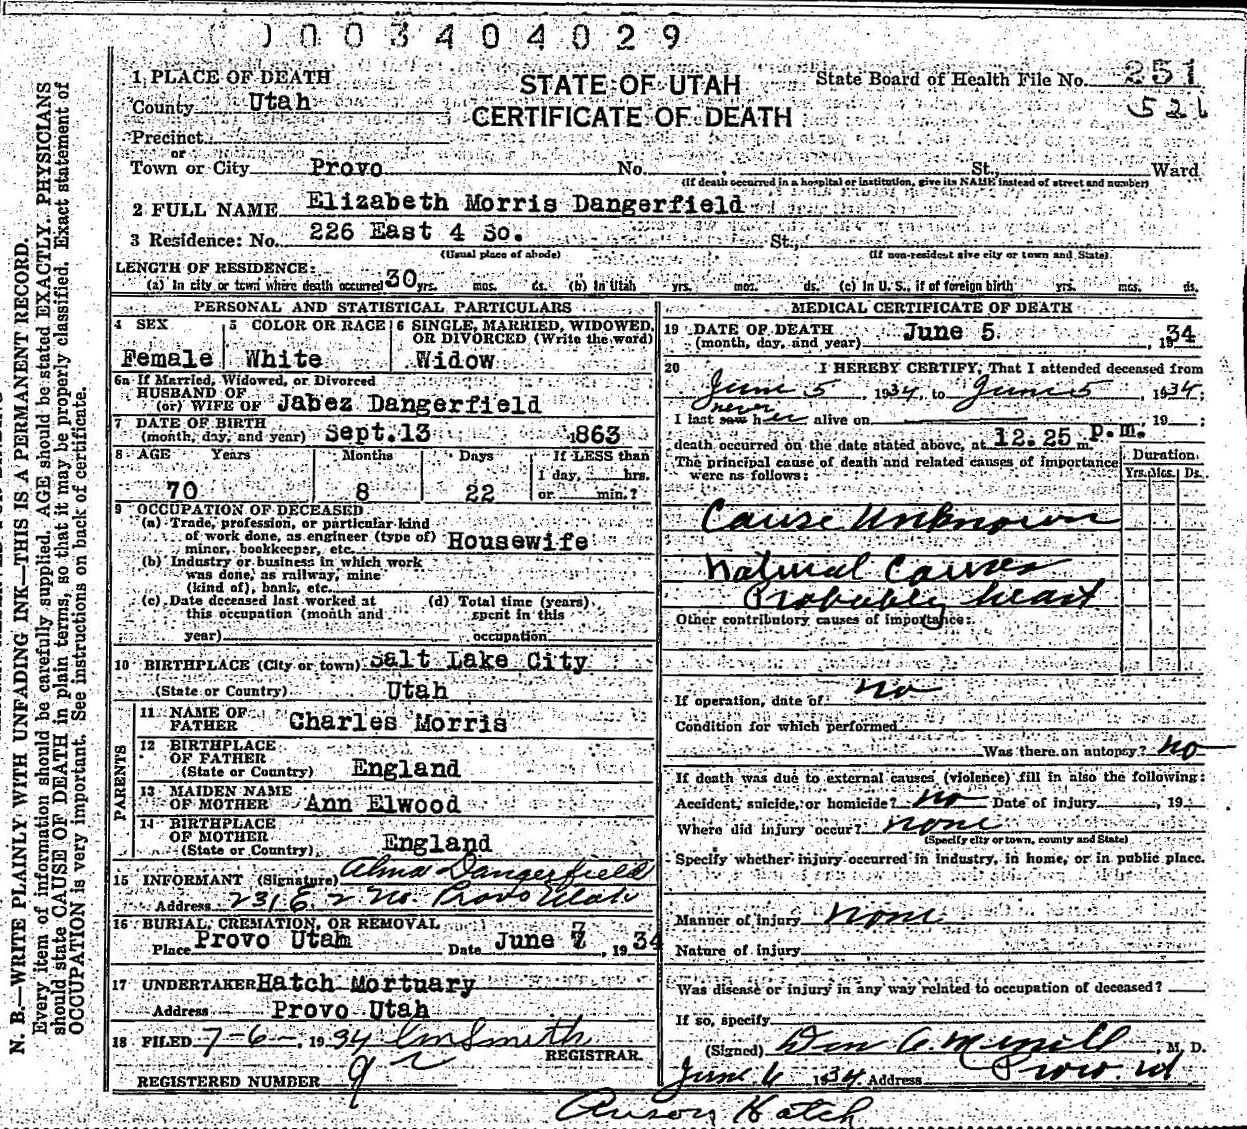 003404029
STATE OF UTAH
CERTIFICATE OF DEATH
State Board of Health File No. 251
521
1 PLACE OF DEATH
County Utah
Precinct
or
Town or City Provo No. St., Ward
(If death occurred in a hospital or institution, give its NAME instead of street and number)
2 FULL NAME Elizabeth Morris Dangerfield
3 Residence: No. 226 East 4 So. St.,
(Usual place of abode) (If non-resident give city or town and State)
LENGTH OF RESIDENCE:
(a) In city or town where death occurred 30 yrs. mos. ds. (b) In Utah yrs. mos. ds. (c) In U. S., if of foreign birth yrs. mos. ds.
PERSONAL AND STATISTICAL PARTICULARS
4 SEX
Female
5 COLOR OR RACE
White
6 SINGLE, MARRIED, WIDOWED, OR DIVORCED (Write the word)
Widow
6a If Married, Widowed, or Divorced
HUSBAND OF
(or) WIFE OF Jabez Dangerfield
7 DATE OF BIRTH
(month, day, and year) Sept. 13 1863
8 AGE Years Months Days If LESS than
1 day, hrs.
70 8 22 or min.?
9 OCCUPATION OF DECEASED
(a) Trade, profession, or particular kind
of work done, as engineer (type of)
miner, bookkeeper, etc. Housewife
(b) Industry or business in which work
was done, as railway, mine
(kind of), bank, etc.
(c) Date deceased last worked at
this occupation (month and
year)
(d) Total time (years)
spent in this
occupation
10 BIRTHPLACE (City or town) Salt Lake City
(State or Country) Utah
PARENTS
11 NAME OF
FATHER Charles Morris
12 BIRTHPLACE
OF FATHER
(State or Country) England
13 MAIDEN NAME
OF MOTHER Ann Elwood
14 BIRTHPLACE
OF MOTHER
(State or Country) England
15 INFORMANT (Signature) Alma Dangerfield
Address 231 E. 2 No. Provo Utah
16 BURIAL, CREMATION, OR REMOVAL
Place Provo Utah Date June 7, 1934
17 UNDERTAKER Hatch Mortuary
Address Provo Utah
18 FILED 7-6-, 1934 Smith
REGISTRAR.
REGISTERED NUMBER 92
MEDICAL CERTIFICATE OF DEATH
19 DATE OF DEATH
(month, day, and year) June 5, 1934
20 I HEREBY CERTIFY, That I attended deceased from
June 5, 1934, to June 5, 1934;
never
I last saw her alive on , 19 ;
death occurred on the date stated above, at 12.25 m. p.m.
The principal cause of death and related causes of importance
were as follows:
Duration
Yrs. Mos. Ds.
Cause Unknown
Natural Causes
Probably heart
Other contributory causes of importance:
If operation, date of no
Condition for which performed
Was there an autopsy? no
If death was due to external causes (violence) fill in also the following:
Accident, suicide, or homicide? no Date of injury , 19
Where did injury occur? none
(Specify city or town, county and State)
Specify whether injury occurred in industry, in home, or in public place.
Manner of injury none
Nature of injury
Was disease or injury in any way related to occupation of deceased?
If so, specify
(Signed) , M. D.
June 6 1934 Address Provo Ut
Anson Hatch
N. B.—WRITE PLAINLY WITH UNFADING INK—THIS IS A PERMANENT RECORD.
Every item of information should be carefully supplied. AGE should be stated EXACTLY. PHYSICIANS
should state CAUSE OF DEATH in plain terms, so that it may be properly classified. Exact statement of
OCCUPATION is very important. See instructions on back of certificate.